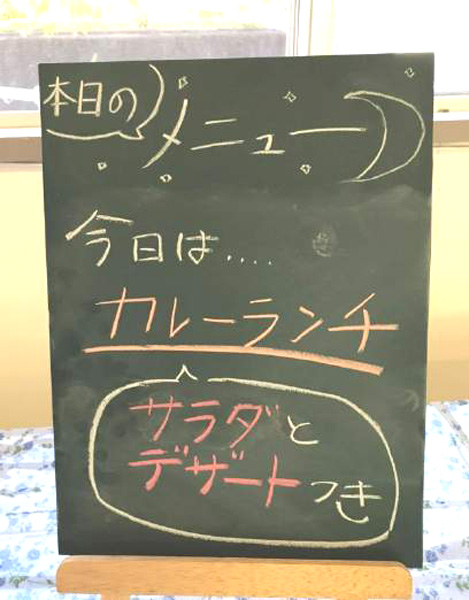 本日の
メニュー
今日は....
カレーランチ
サラダと
デザートつき